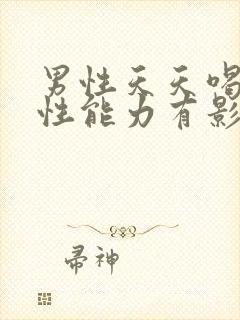 男性天天喝
性能力有影
帚神